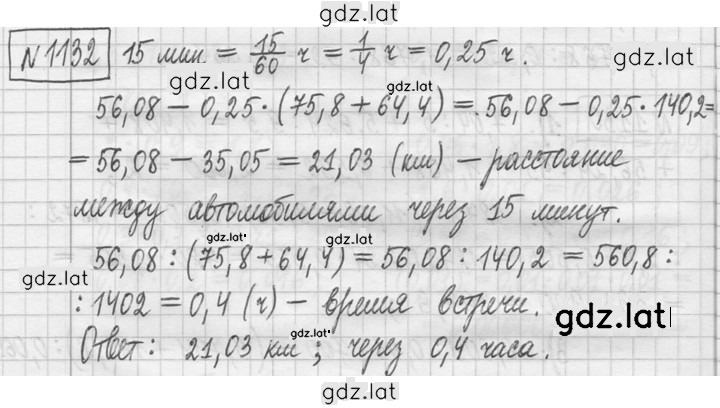 gdz.lat
N 1132 15 мин = 15/60 ч = 1/4 ч = 0,25 ч.
gdz.lat gdz.lat gdz.lat
56,08 − 0,25 · (75,8 + 64,4) = 56,08 − 0,25 · 140,2 =
= 56,08 − 35,05 = 21,03 (км) — расстояние
между автомобилями через 15 минут.
gdz.lat gdz.lat
56,08 : (75,8 + 64,4) = 56,08 : 140,2 = 560,8 :
gdz.lat
: 1402 = 0,4 (ч) — время встречи.
gdz.lat gdz.lat
Ответ: 21,03 км; через 0,4 часа.
gdz.lat